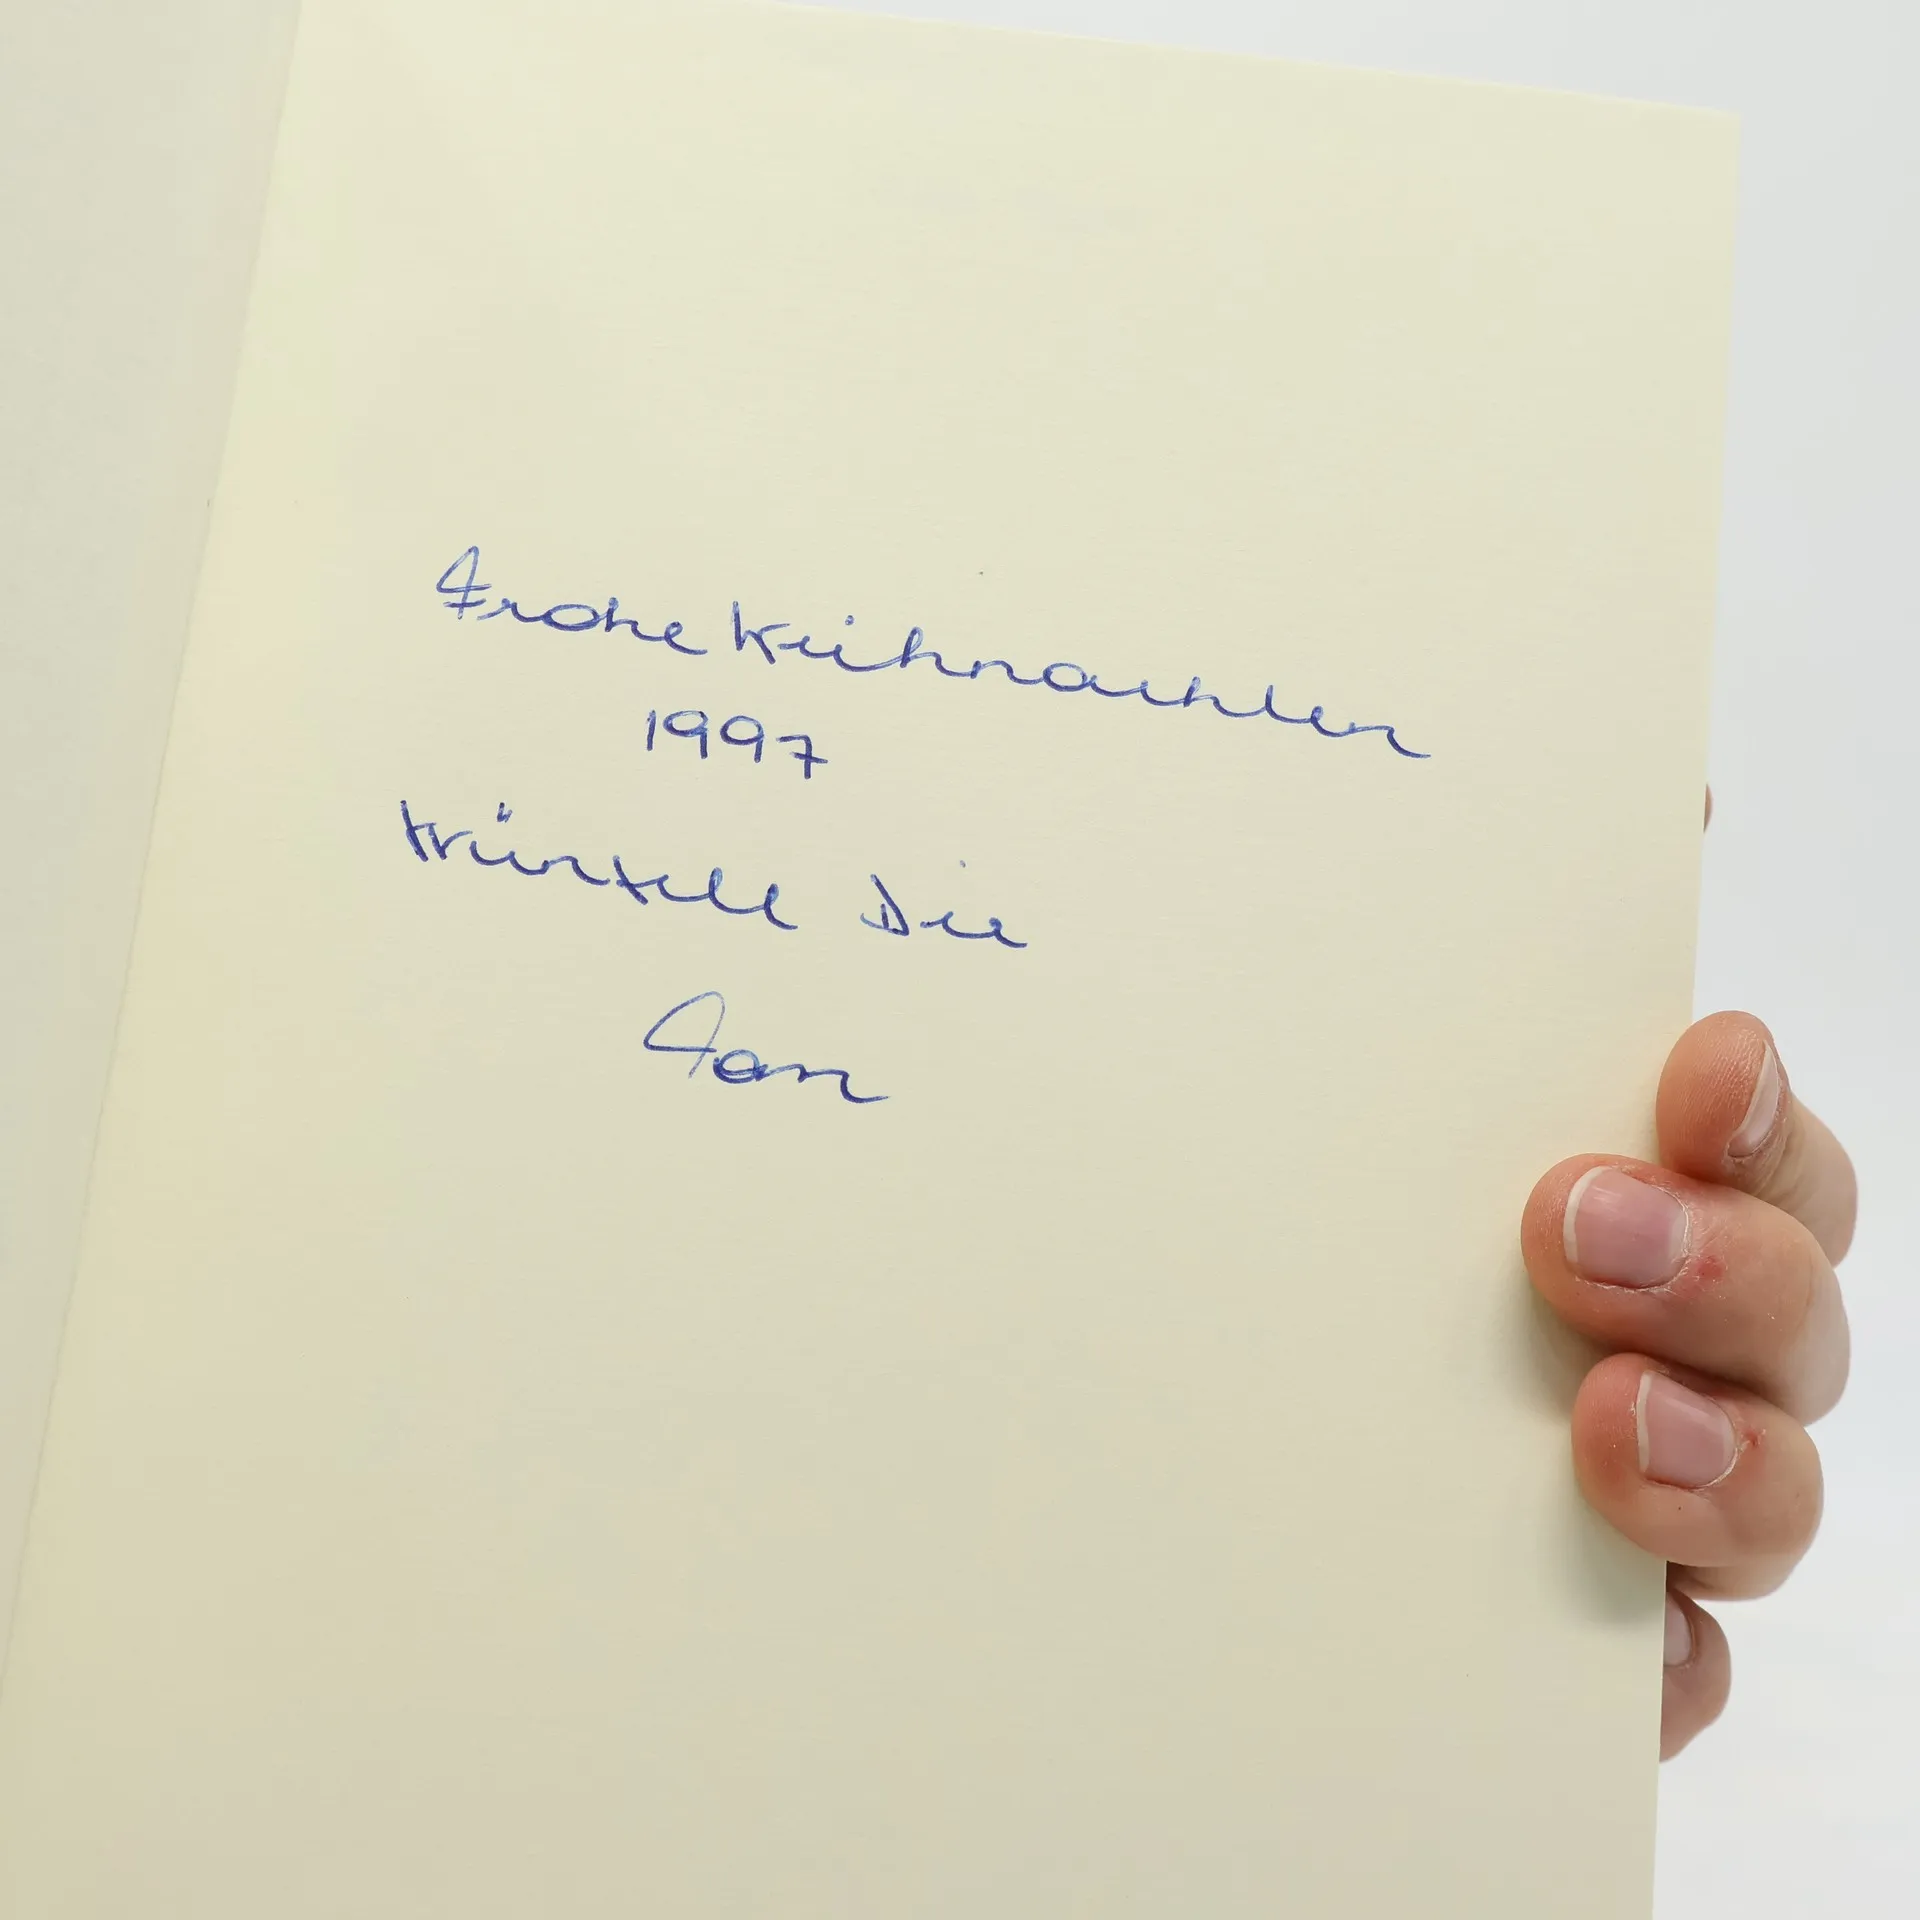 Frohe Weihnachten
1997
Wünscht Dir
Jan